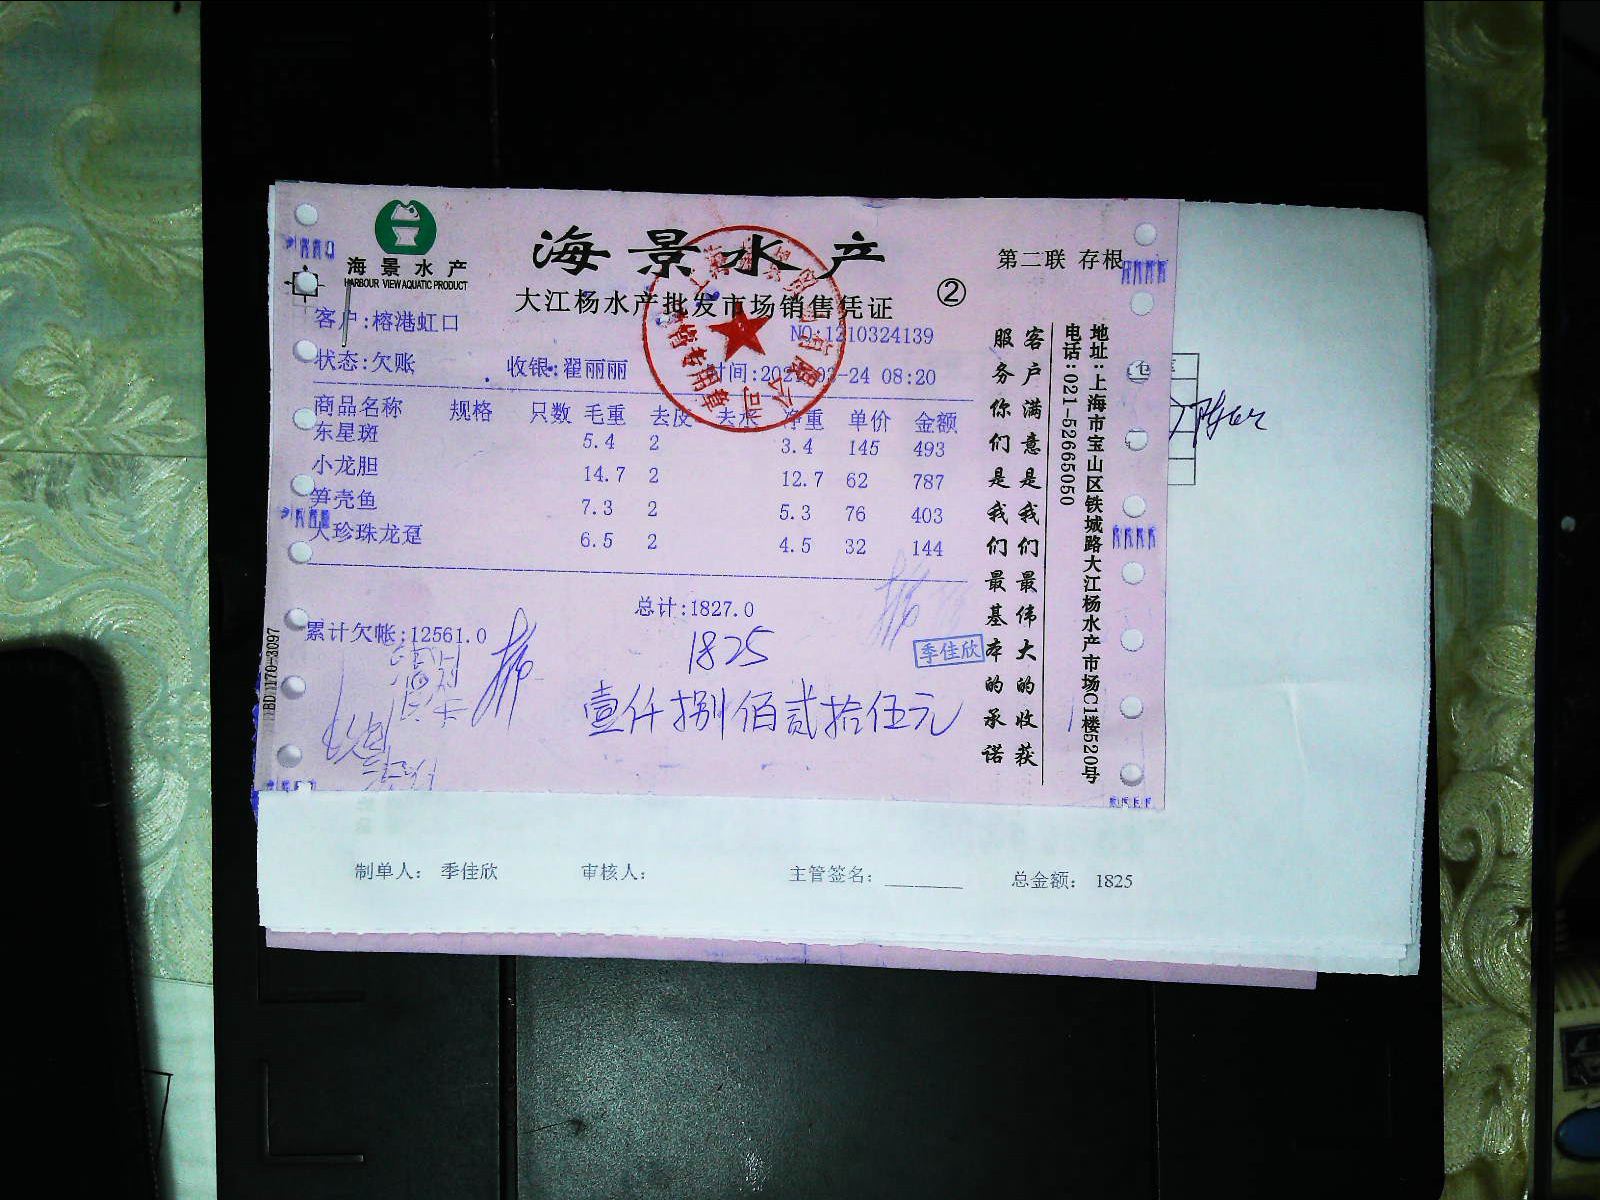 海景水产
HARBOUR VIEW AQUATIC PRODUCT
海景水产
大江杨水产批发市场销售凭证
②
第二联 存根
客户:榕港虹口
NO:1210324139
状态:欠账 收银:翟丽丽 时间: 03-24 08:20
商品名称 规格 只数 毛重 去皮 去水 净重 单价 金额
东星斑 5.4 2 3.4 145 493
小龙胆 14.7 2 12.7 62 787
笋壳鱼 7.3 2 5.3 76 403
大珍珠龙趸 6.5 2 4.5 32 144
总计:1827.0
累计欠帐:12561.0
1825
季佳欣
壹仟捌佰贰拾伍元
客户满意是我们最伟大的收获
服务你们是我们最基本的承诺
地址:上海市宝山区铁城路大江杨水产市场C1楼520号
电话:021-52665050
制单人: 季佳欣 审核人: 主管签名: 总金额: 1825